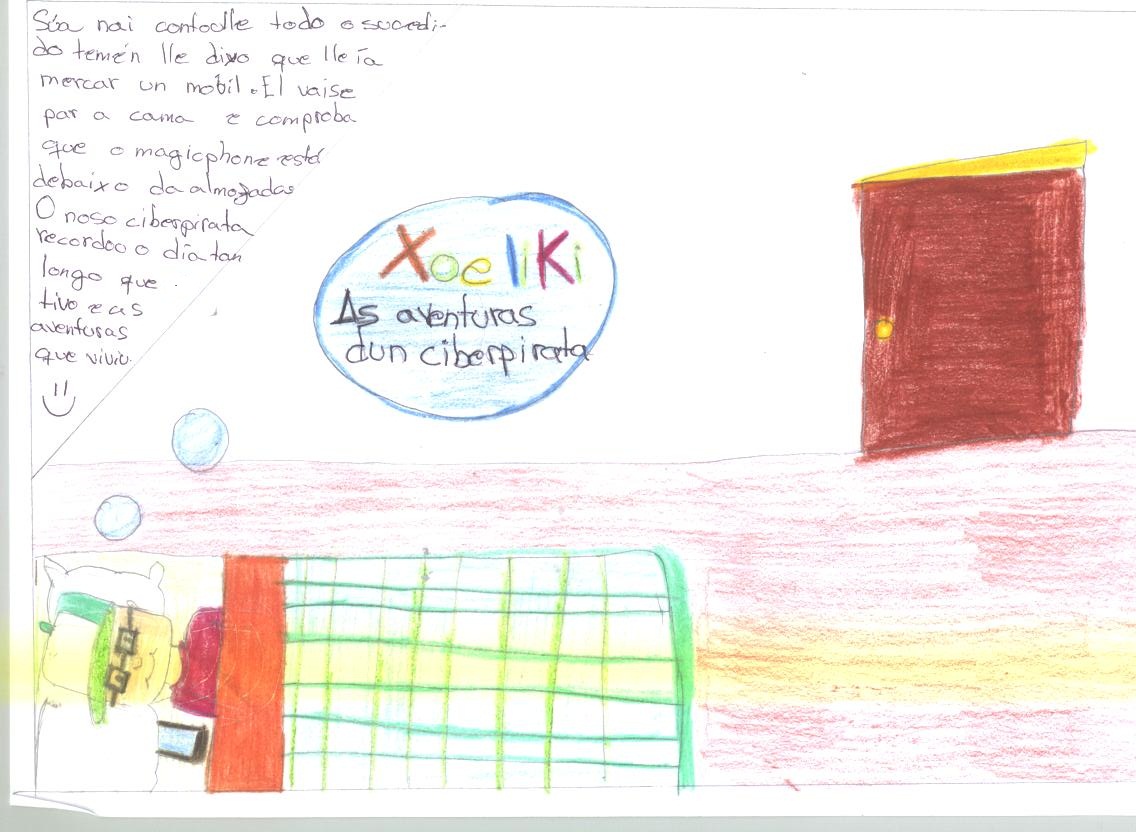 Súa nai contoulle todo o sucedi-
do temén lle dixo que lle ía
mercar un mobil. El vaise
par a cama e comproba
que o magicphone está
debaixo da almogadas
O noso ciberpirata
recordoo o día tan
longo que
tivo e as
aventuras
que viviu.
XoeliKi
As aventuras
dun ciberpirata